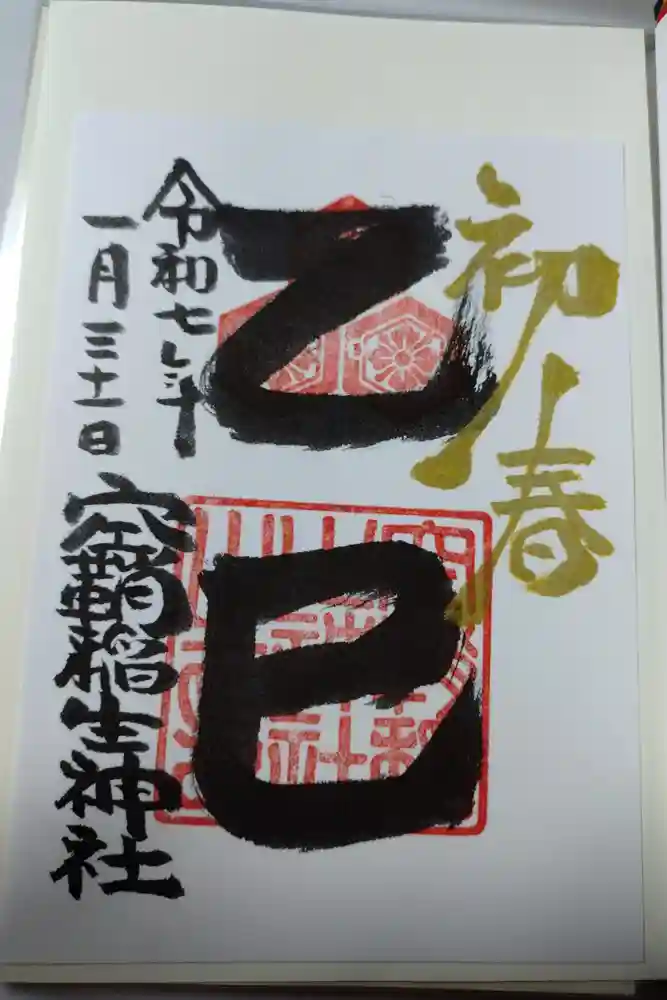 初春
乙巳
令和七年
一月三十一日
空鞘稲生神社